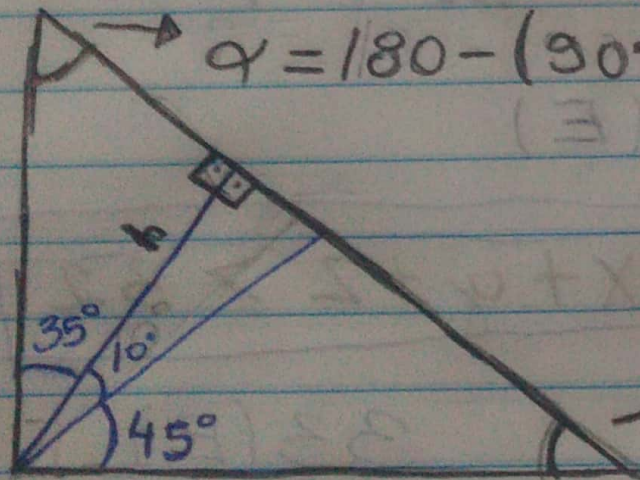 α = 180 - (90
35°
10°
45°